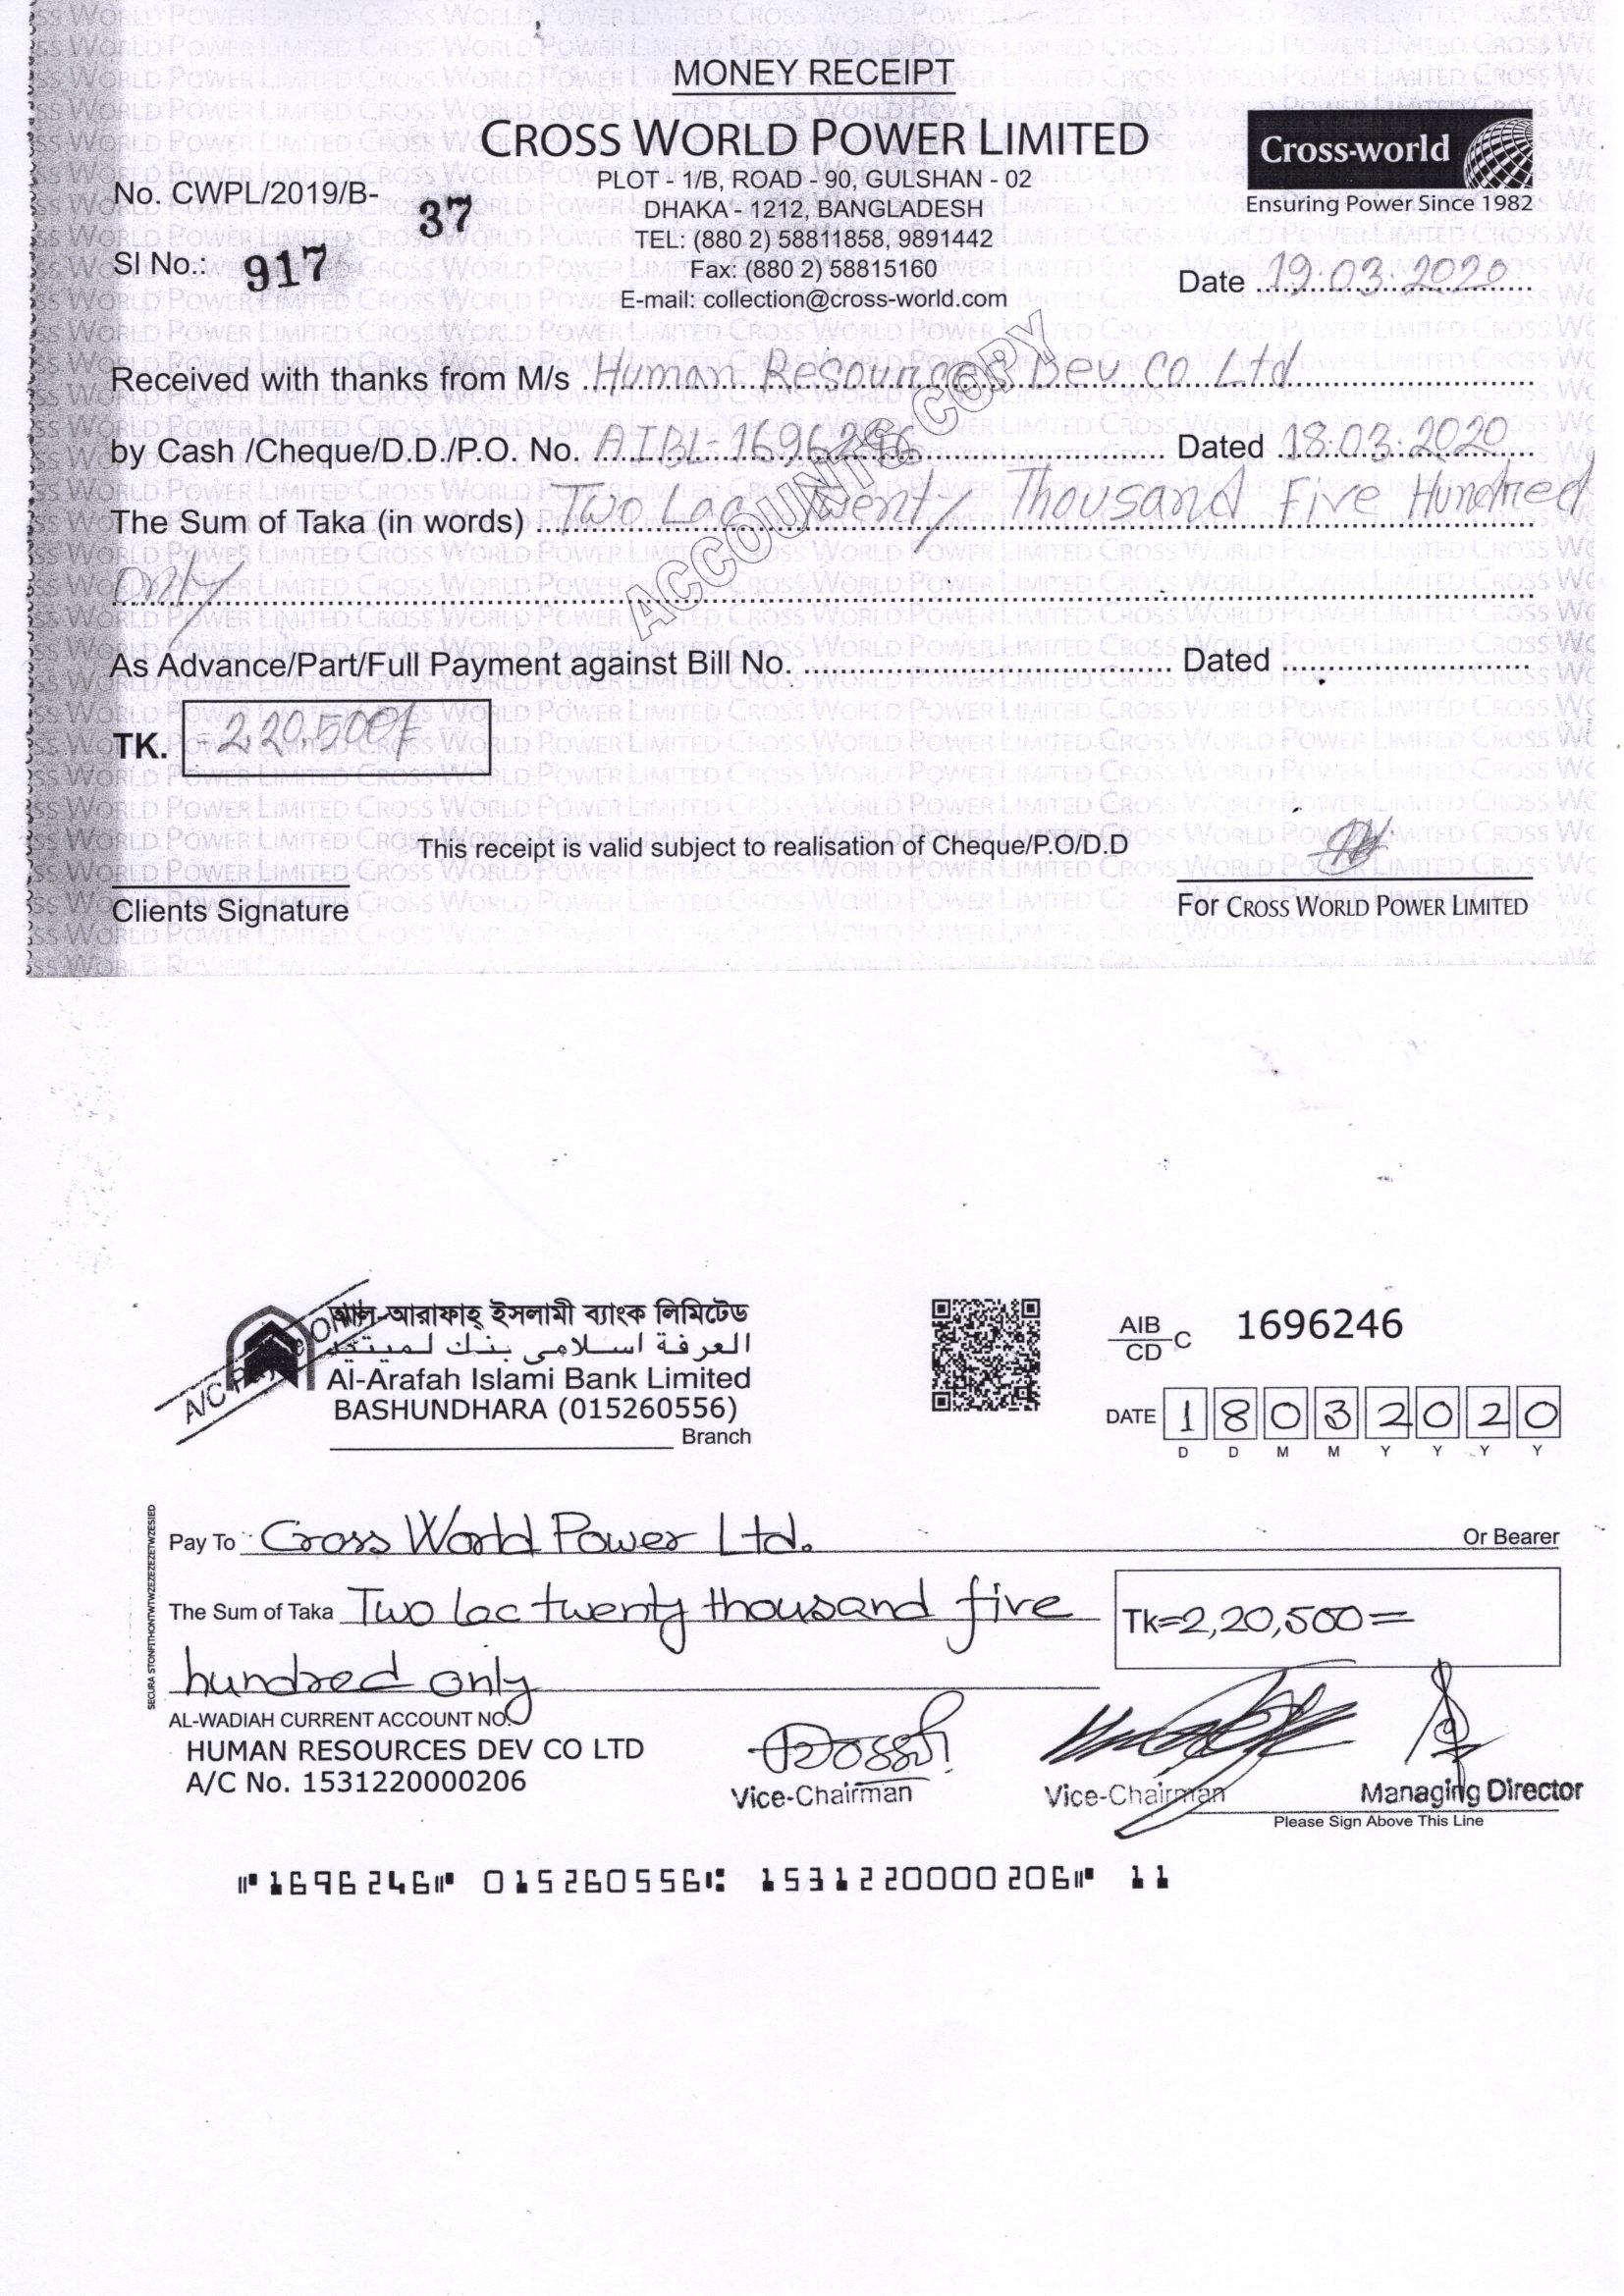 MONEY RECEIPT
CROSS WORLD POWER LIMITED
Cross-world
Ensuring Power Since 1982
PLOT - 1/B, ROAD - 90, GULSHAN - 02
DHAKA - 1212, BANGLADESH
TEL: (880 2) 58811858, 9891442
Fax: (880 2) 58815160
E-mail: collection@cross-world.com
No. CWPL/2019/B- 37
Sl No.: 917
Date 19.03.2020
Received with thanks from M/s Human Resources Dev. Co. Ltd
ACCOUNTS COPY
by Cash /Cheque/D.D./P.O. No. AIBL-1696246 Dated 18.03.2020
The Sum of Taka (in words) Two Lac Twenty Thousand Five Hundred
only
As Advance/Part/Full Payment against Bill No. Dated
TK. 2,20,500/
This receipt is valid subject to realisation of Cheque/P.O/D.D
Clients Signature
For CROSS WORLD POWER LIMITED
আল-আরাফাহ্ ইসলামী ব্যাংক লিমিটেড
العرفة اسلامى بنك لميتيد
Al-Arafah Islami Bank Limited
BASHUNDHARA (015260556)
Branch
AIB
CD C 1696246
DATE 1 8 0 3 2 0 2 0
D D M M Y Y Y Y
Pay To Cross World Power Ltd. Or Bearer
The Sum of Taka Two lac twenty thousand five
hundred only
Tk=2,20,500=
AL-WADIAH CURRENT ACCOUNT NO.
HUMAN RESOURCES DEV CO LTD
A/C No. 1531220000206
Vice-Chairman Vice-Chairman Managing Director
Please Sign Above This Line
1696246 015260556 1531220000206 11